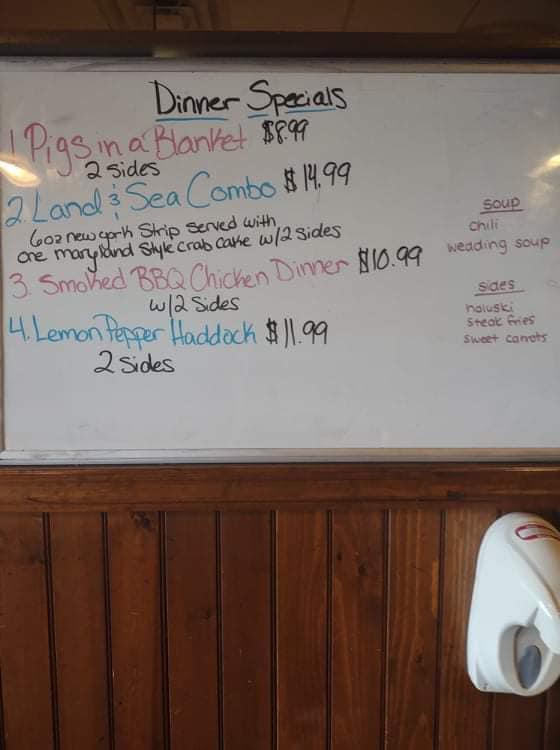 Dinner Specials
1 Pigs in a Blanket $8.99
2 sides
2. Land & Sea Combo $14.99
6oz new york strip served with
one maryland style crab cake w/2 sides
3. Smoked BBQ Chicken Dinner $10.99
w/2 sides
4. Lemon Pepper Haddock $11.99
2 sides
soup
chili
wedding soup
sides
haluski
steak fries
sweet carrots